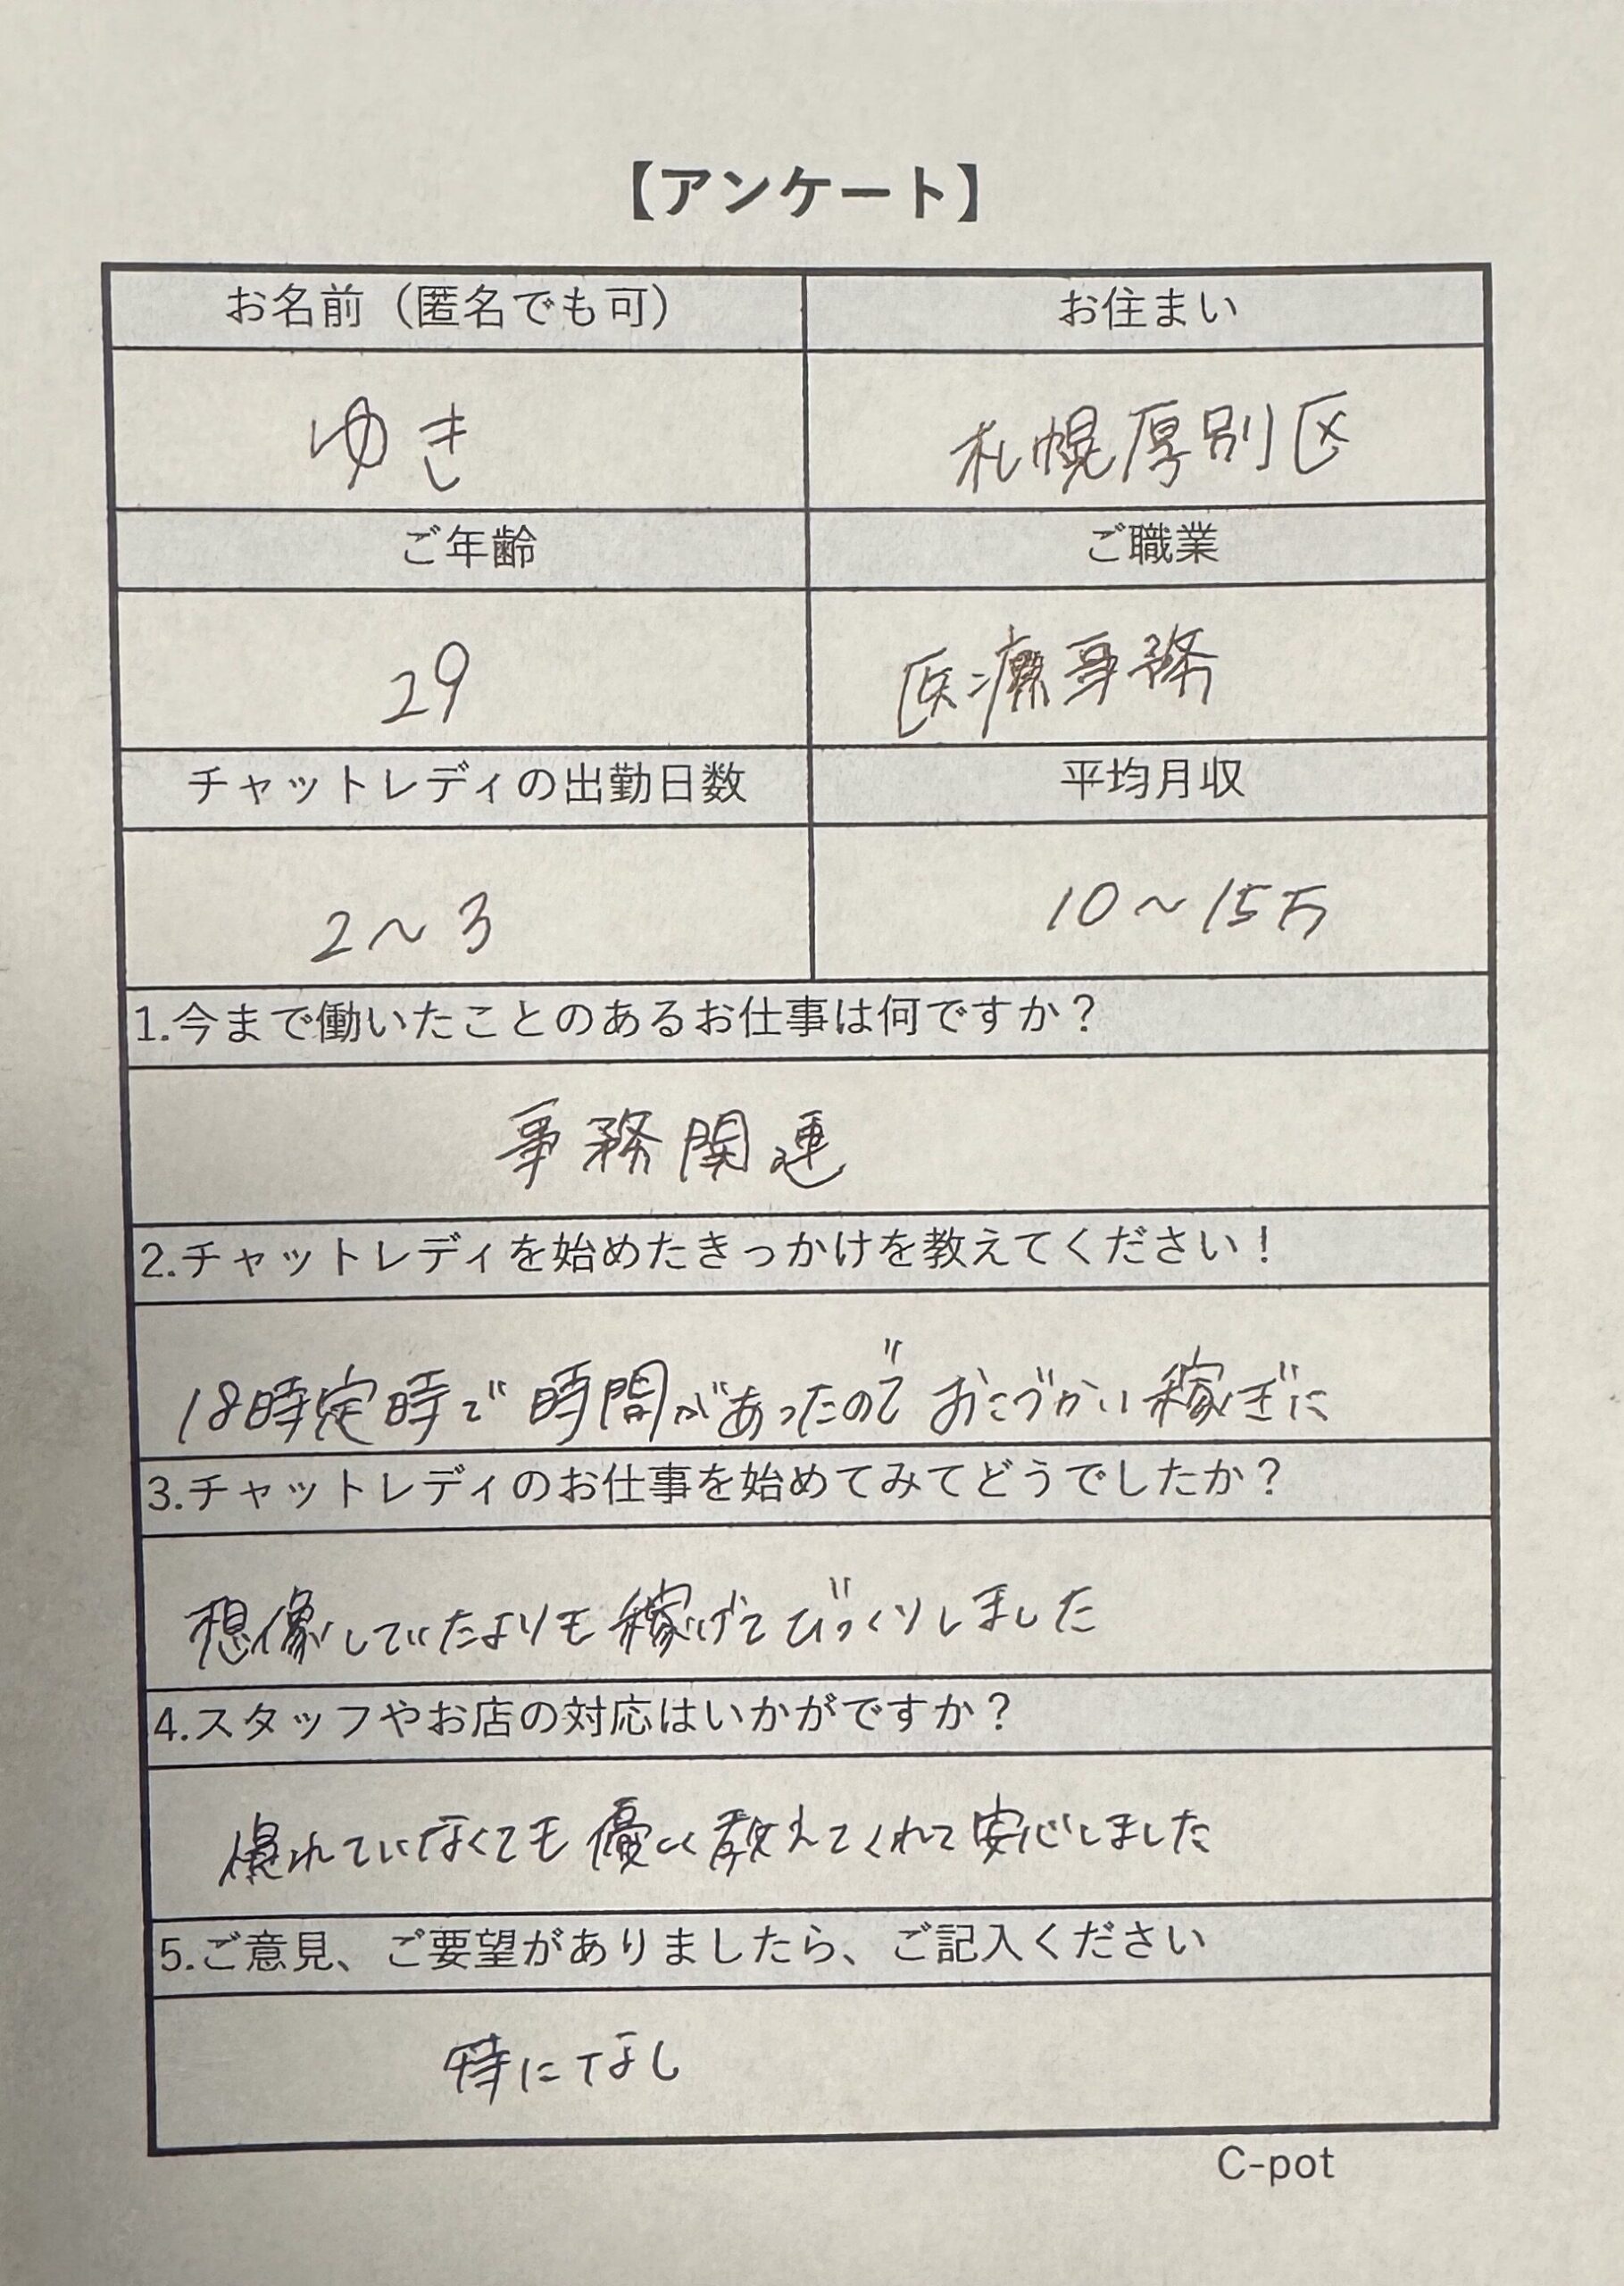 【アンケート】
お名前（匿名でも可） お住まい
ゆき 札幌厚別区
ご年齢 ご職業
29 医療事務
チャットレディの出勤日数 平均月収
2〜3 10〜15万
1.今まで働いたことのあるお仕事は何ですか？
事務関連
2.チャットレディを始めたきっかけを教えてください！
18時定時で時間があったのでおこづかい稼ぎに
3.チャットレディのお仕事を始めてみてどうでしたか？
想像していたよりも稼げてびっくりしました
4.スタッフやお店の対応はいかがですか？
慣れていなくても優しく教えてくれて安心しました
5.ご意見、ご要望がありましたら、ご記入ください
特になし
C-pot